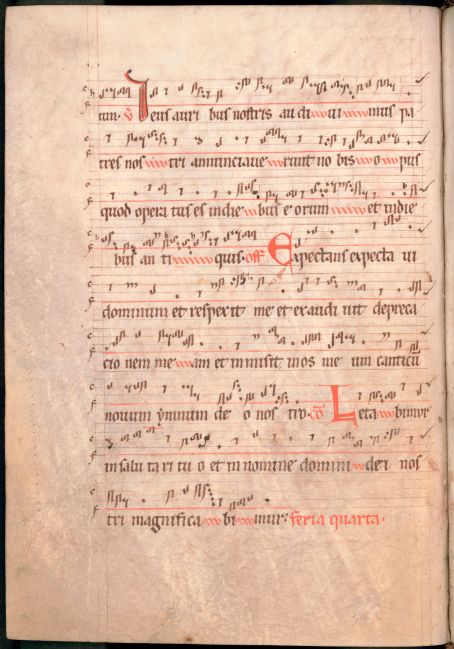 um. v Deus auri bus nostris au di vi mus pa
tres nos tri annunciave runt no bis o pus
quod opera tus es in die bus e orum et in die
bus an ti quis. off Expectans expecta vi
dominum et respexit me et exaudi vit depreca
cio nem me am et inmisit in os me um canticū
novum ymnum de o nos tro. cō Leta bimur
in salu ta ri tu o et in nomine domini de i nos
tri magnifica bi mur. feria quarta.